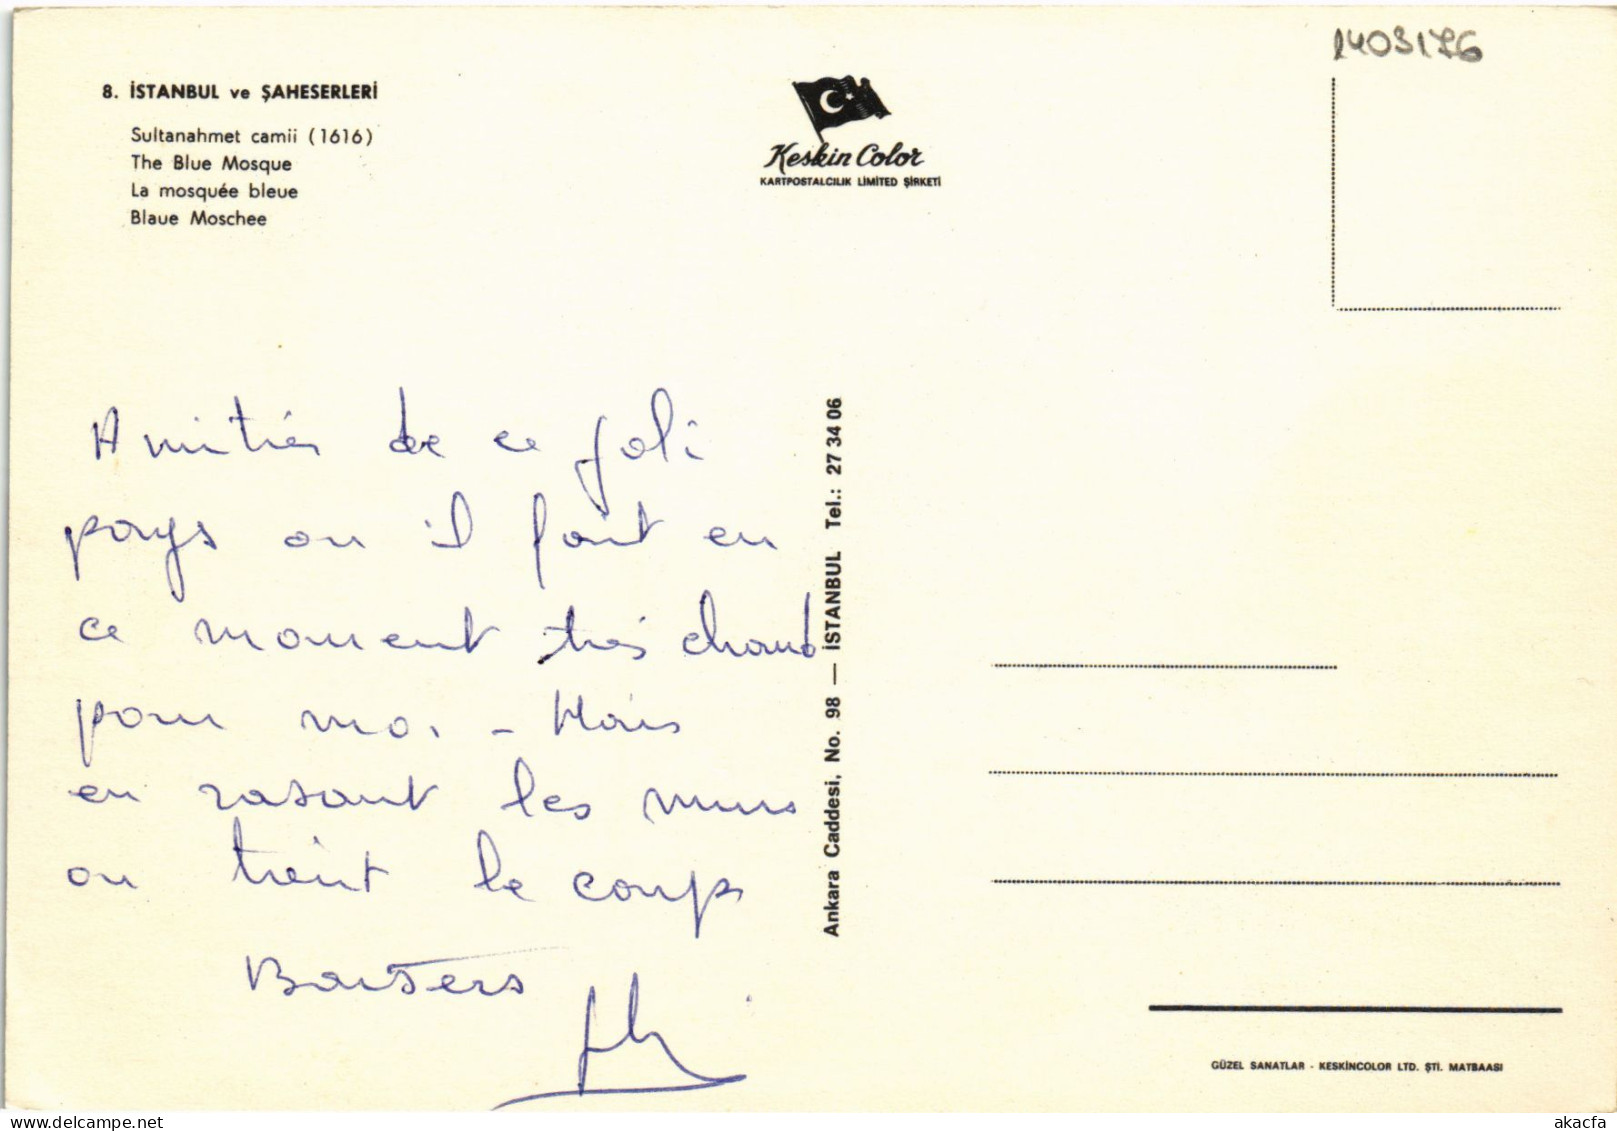 1403176
8. İSTANBUL ve ŞAHESERLERİ
Sultanahmet camii (1616)
The Blue Mosque
La mosquée bleue
Blaue Moschee
Keskin Color
KARTPOSTALCILIK LİMİTED ŞİRKETİ
Amitiés de ce joli
pays ou il fait en
ce moment très chaud
pour moi - Mais
en rasant les murs
on tient le coup
Baisers
Ankara Caddesi, No. 98 — İSTANBUL Tel.: 27 34 06
GÜZEL SANATLAR - KESKİNCOLOR LTD. ŞTİ. MATBAASI
www.delcampe.net
akacfa